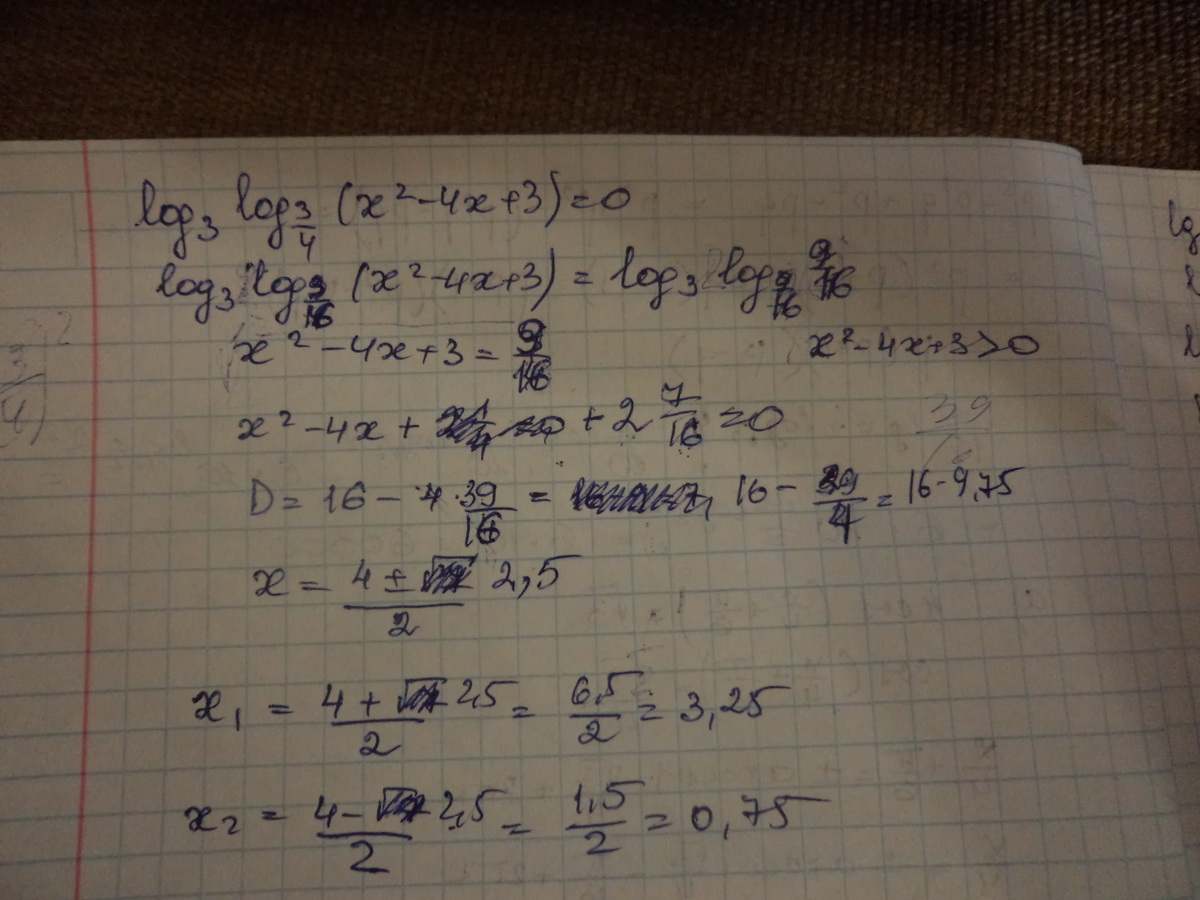 log₃ log_{3/4} (x²-4x+3)=0
log₃ log_{9/16} (x²-4x+3) = log₃ log_{9/16} 9/16
x²-4x+3 = 9/16 x²-4x+3>0
x²-4x+ +2 7/16 =0
39
D= 16 - 4·39/16 = 16 - 39/4 = 16-9,75
x = (4 ± 2,5)/2
x₁ = (4 + 2,5)/2 = 6,5/2 = 3,25
x₂ = (4 - 2,5)/2 = 1,5/2 = 0,75